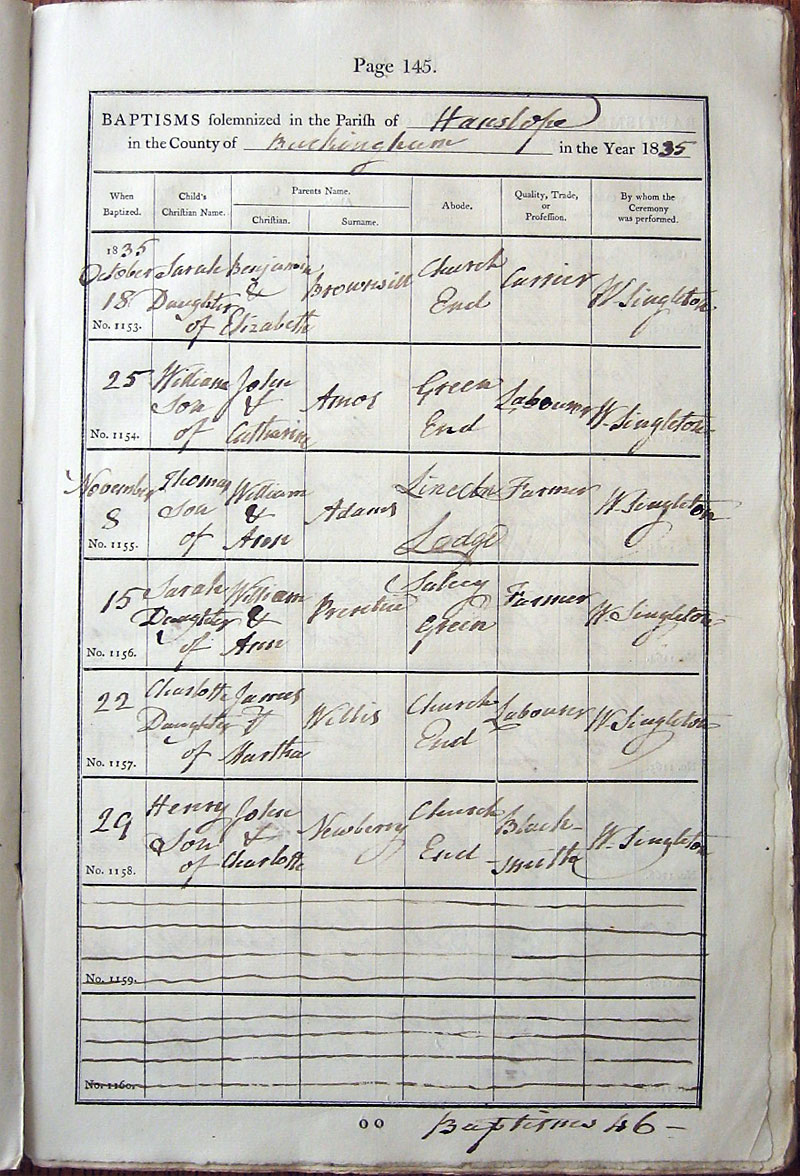 Page 145.
BAPTISMS solemnized in the Parish of Hanslope
in the County of Buckingham in the Year 1835
When Baptized. Child's Christian Name. Parents Name. Christian. Surname. Abode. Quality, Trade, or Profession. By whom the Ceremony was performed.
1835
October Sarah Benjamin Church Currier
18 Daughter & Brownsill End W Singleton
No. 1153. of Elizabeth
25 William John Green
Son & Amos Labourer W. Singleton
No. 1154. of Catharine End
November Thomas William Lincoln Farmer
8 Son & Adams W. Singleton
No. 1155. of Ann Lodge
15 Sarah William Salcey Farmer
Daughter & Green W. Singleton
No. 1156. of Ann
22 Charlotte James Church
Daughter & Willis Labourer W. Singleton
No. 1157. of Martha End
29 Henry John Church Black-
Son & Newberry W. Singleton
No. 1158. of Charlotte End smith
No. 1159.
No. 1160.
OO Baptisms 46 -